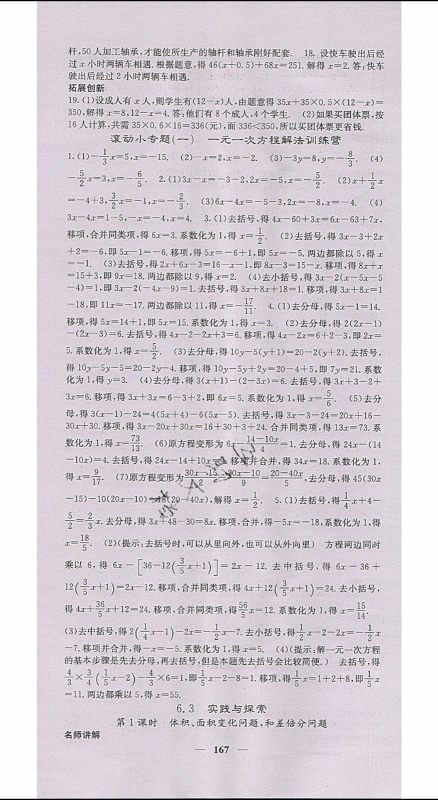 杆,50人加工轴承,才能使所生产的轴杆和轴承刚好配套.　18. 设快车驶出后经
过 x 小时两辆车相遇.根据题意,得 46(x+0.5)+68x=251. 解得 x=2. 答:快车
驶出后经过 2 小时两辆车相遇.
拓展创新
19. (1)设成人有 x 人,则学生有(12-x)人,由题意得 35x+35×0.5×(12-x)=
350,解得 x=8,12-x=4. 答:他们有 8 个成人,4 个学生.　(2)如果买团体票,按
16 人计算,共需 35×0.6×16=336(元),而 336<350,所以买团体票更省钱.
滚动小专题(一)　一元一次方程解法训练营
1. (1)-1/3x=5,x=-15.　(2)-x=2,x=-2.　(3)-3y=8,y=-8/3.　(4)
-5/2x=3,x=-6/5.　2. (1)3x-x=-3-2,2x=-5,x=-5/2.　(2)x+1/2x
=-4+3,3/2x=-1,x=-2/3.　(3)6x-4x=-5-3,2x=-8,x=-4.　(4)
3x-4x=1-5,-x=-4,x=4.　3. (1)去括号,得 4x-60+3x=6x-63+7x,
移项,合并同类项,得 6x=3. 系数化为 1,得 x=1/2.　(2)去括号,得 3x-3+2x
+2=-6,即 5x-1=-6. 移项,得 5x=-6+1,即 5x=-5. 两边都除以 5,得 x
=-1.　(3)去括号,得 2x+6x-3=16-x-1,即 8x-3=15-x. 移项,得 8x+x
=15+3,即 9x=18. 两边都除以 9,得 x=2.　(4)去小括号,得 3x-2(x-5x-5
-4)=1,即 3x-2(-4x-9)=1. 去括号,得 3x+8x+18=1. 移项,得 3x+8x=1
-18,即 11x=-17. 两边都除以 11,得 x=-17/11.　4. (1)去分母,得 5x-1=14.
移项,得 5x=14+1,即 5x=15. 系数化为 1,得 x=3.　(2)去分母,得 2(2x-1)
-(2x-3)=6. 去括号,得 4x-2-2x+3=6. 移项,得 4x-2x=6+2-3,即 2x=
5. 系数化为 1,得 x=5/2.　(3)去分母,得 10y-5(y+1)=20-2(y+2). 去括号,
得 10y-5y-5=20-2y-4. 移项,得 10y-5y+2y=20-4+5,即 7y=21. 系数
化为 1,得 y=3.　(4)去分母,得 3(x+1)-(2-3x)=6. 去括号,得 3x+3-2+
3x=6. 移项,得 3x+3x=6-3+2,即 6x=5. 系数化为 1,得 x=5/6.　(5)去分
母,得 3(x-1)-24=4(5x+4)-6(5x-5). 去括号,得 3x-3-24=20x+16-
30x+30. 移项,得 3x-20x+30x=16+30+3+24. 合并同类项,得 13x=73. 系
数化为 1,得 x=73/13.　(6)原方程变形为 6x-(14-10x)/4=1. 去分母,得 24x-(14
-10x)=4. 去括号,得 24x-14+10x=4. 移项并合并,得 34x=18. 系数化为 1,
得 x=9/17.　(7)原方程变形为(30x-15)/2-(20x-10)/9=(20-40x)/5,去分母,得 45(30x
-15)-10(20x-10)=18(20-40x),解得 x=1/2.　5. (1)去括号,得1/4x+4-
5/2=2/3x. 去分母,得 3x+48-30=8x. 移项,合并,得-5x=-18,系数化为 1,得
x=18/5.　(2)(提示:去括号时,可以从里向外,也可以从外向里)　方程两边同时
乘以 6,得 6x-[36-12(3/5x+1)]=2x-12. 去中括号,得 6x-36+
12(3/5x+1)=2x-12. 移项,合并同类项,得 4x+12(3/5x+1)=24. 去小括号,
得 4x+36/5x+12=24. 移项,合并同类项,得56/5x=12. 系数化为 1,得 x=15/14.
(3)去中括号,得 2(1/4x-1)-2x=-1/2x-7. 去小括号,得1/2x-2-2x=-1/2x
-7. 移项并合并,得-x=-5. 系数化为 1,得 x=5.　(4)(提示:解一元一次方程
的基本步骤是先去分母,再去括号,但是本题先去括号会比较简便.)　去括号,得
4/3×3/4(1/5x-2)-4/3×6=1,即1/5x-2-8=1. 移项,得1/5x=1+2+8,即1/5x
=11. 两边都乘以 5,得 x=55.
6.3　实践与探索
第 1 课时　体积、面积变化问题,和差倍分问题
名师讲解
— 167 —